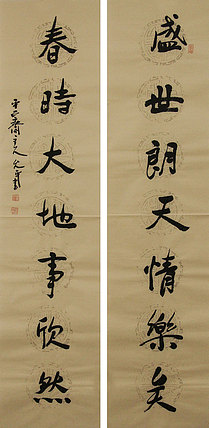 盛世朗天情樂矣
春時大地事欣然